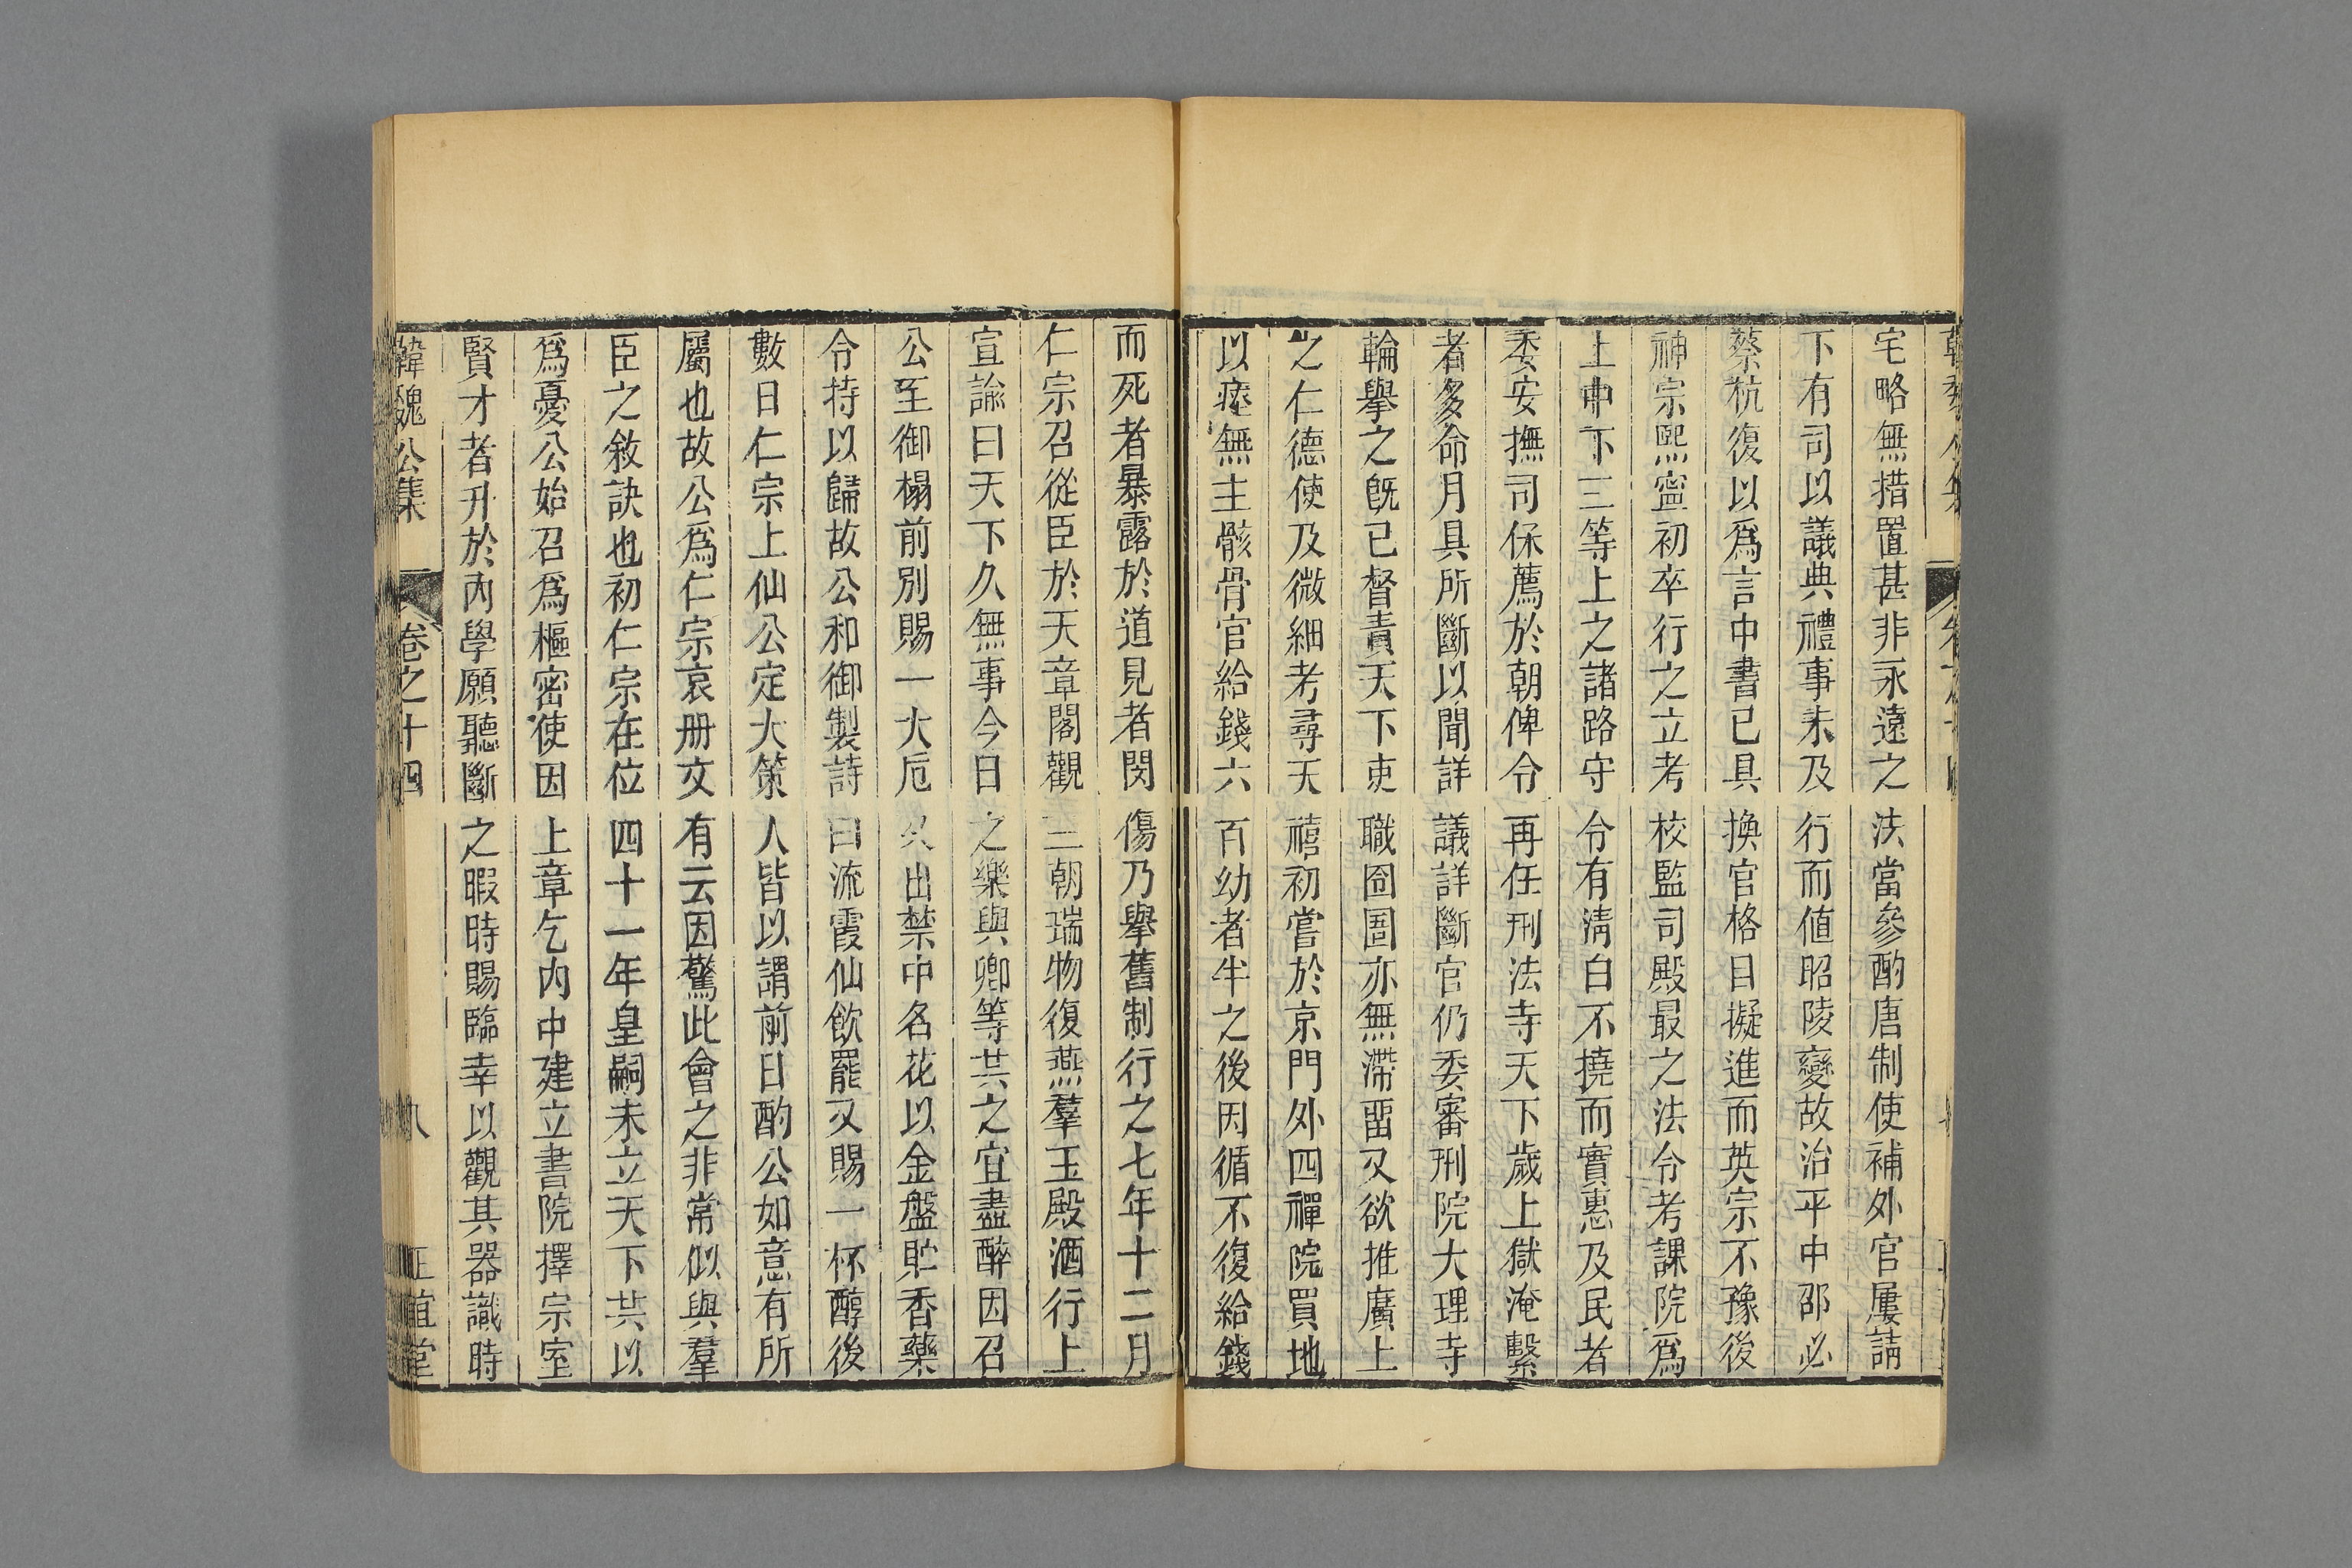 宅略無措置甚非永遠之法當參酌唐制使補外官屢請
下有司以議典禮事未及行而值昭陵變故治平中邵必
蔡杭復以爲言中書已具換官格目擬進而英宗不豫後
神宗熙寧初卒行之立考校監司殿最之法令考課院爲
上中下三等上之諸路守令有淸白不撓而實惠及民者
委安撫司保薦於朝俾令再任刑法寺天下歲上獄淹繫
者多命月具所斷以聞詳議詳斷官仍委審刑院大理寺
輪舉之旣已督責天下吏職囹圄亦無滯畱又欲推廣上
之仁德使及微細考尋天禧初嘗於京門外四禪院買地
以瘞無主骸骨官給錢六百幼者半之後因循不復給錢
而死者暴露於道見者閔傷乃舉舊制行之七年十二月
仁宗召從臣於天章閣觀三朝瑞物復燕羣玉殿酒行上
宣諭曰天下久無事今日之樂與卿等共之宜盡醉因召
公至御榻前別賜一大卮又出禁中名花以金盤貯香藥
令持以歸故公和御製詩曰流霞仙飮罷又賜一杯醇後
數日仁宗上仙公定大策人皆以謂前日酌公如意有所
屬也故公爲仁宗哀册文有云因驚此會之非常似與羣
臣之敘訣也初仁宗在位四十一年皇嗣未立天下共以
爲憂公始召爲樞密使因上章乞內中建立書院擇宗室
賢才者升於內學願聽斷之暇時賜臨幸以觀其器識時
韓魏公集 卷之十四 八 正誼堂